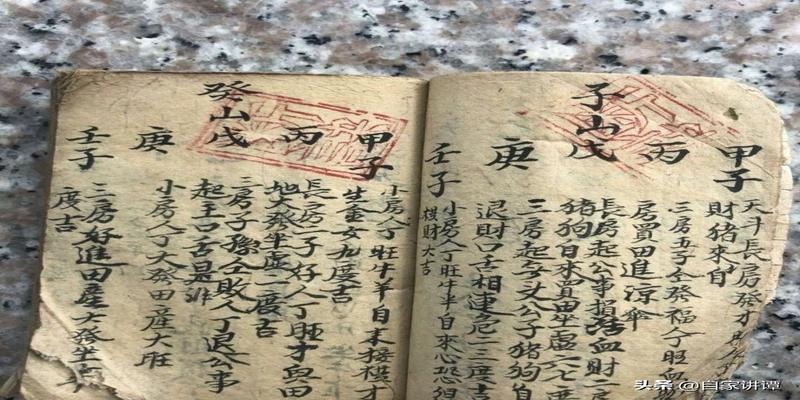 子山
甲子
丙
戊
庚
壬子
天斗長房發才
財猪來自
三房五子全發福人丁旺血
房買田進涼傘
長房起公事損 血財二房
猪狗自來買田坐虛六七度
三房起 頭公子猪狗自
退財口舌相連危二三度吉
小房人丁旺牛羊自來心恐
横財大吉
癸山
甲子
丙
戊
庚
壬子
小房人丁旺牛羊自來接横才
生 女九度吉
長房二子好人丁旺才血田
地大發坐虛一度吉
三房子孫 敗人丁退公事
起主口舌是非
小房人丁大發田產大旺
三房好進田產大發坐
度吉
头条 @自家讲谭